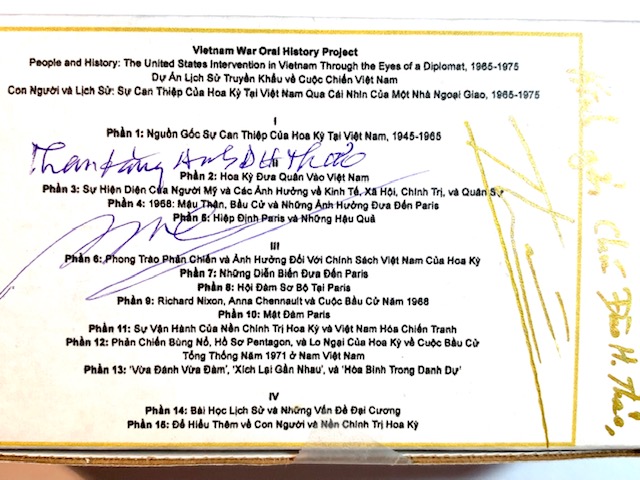 Vietnam War Oral History Project
People and History: The United States Intervention in Vietnam Through the Eyes of a Diplomat, 1965-1975
Dự Án Lịch Sử Truyền Khẩu về Cuộc Chiến Việt Nam
Con Người và Lịch Sử: Sự Can Thiệp Của Hoa Kỳ Tại Việt Nam Qua Cái Nhìn Của Một Nhà Ngoại Giao, 1965-1975
I
Phần 1: Nguồn Gốc Sự Can Thiệp Của Hoa Kỳ Tại Việt Nam, 1945-1965
Thân tặng Anh Đ H Thảo
II
Phần 2: Hoa Kỳ Đưa Quân Vào Việt Nam
Phần 3: Sự Hiện Diện Của Người Mỹ và Các Ảnh Hưởng về Kinh Tế, Xã Hội, Chính Trị, và Quân Sự
Phần 4: 1968: Mậu Thân, Bầu Cử và Những Ảnh Hưởng Đưa Đến Paris
Phần 5: Hiệp Định Paris và Những Hậu Quả
III
Phần 6: Phong Trào Phản Chiến và Ảnh Hưởng Đối Với Chính Sách Việt Nam Của Hoa Kỳ
Phần 7: Những Diễn Biến Đưa Đến Paris
Phần 8: Hội Đàm Sơ Bộ Tại Paris
Phần 9: Richard Nixon, Anna Chennault và Cuộc Bầu Cử Năm 1968
Phần 10: Mật Đàm Paris
Phần 11: Sự Vận Hành Của Nền Chính Trị Hoa Kỳ và Việt Nam Hóa Chiến Tranh
Phần 12: Phản Chiến Bùng Nổ, Hồ Sơ Pentagon, và Lo Ngại Của Hoa Kỳ về Cuộc Bầu Cử
Tổng Thống Năm 1971 ở Nam Việt Nam
Phần 13: 'Vừa Đánh Vừa Đàm', 'Xích Lại Gần Nhau', và 'Hòa Bình Trong Danh Dự'
IV
Phần 14: Bài Học Lịch Sử và Những Vấn Đề Đại Cương
Phần 15: Để Hiểu Thêm về Con Người và Nền Chính Trị Hoa Kỳ
Chú Đào H. Thảo,